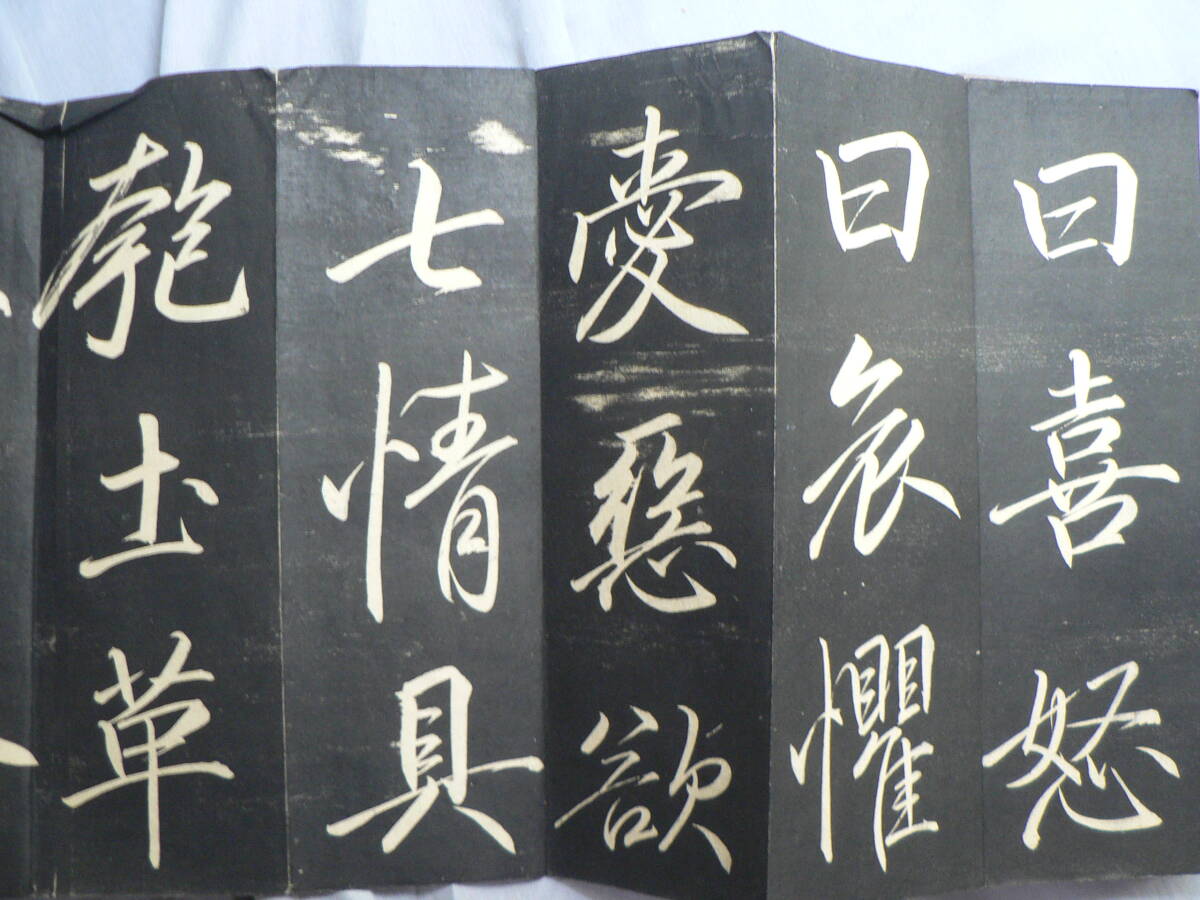 曰喜怒
曰哀懼
愛惡欲
七情具
匏土革